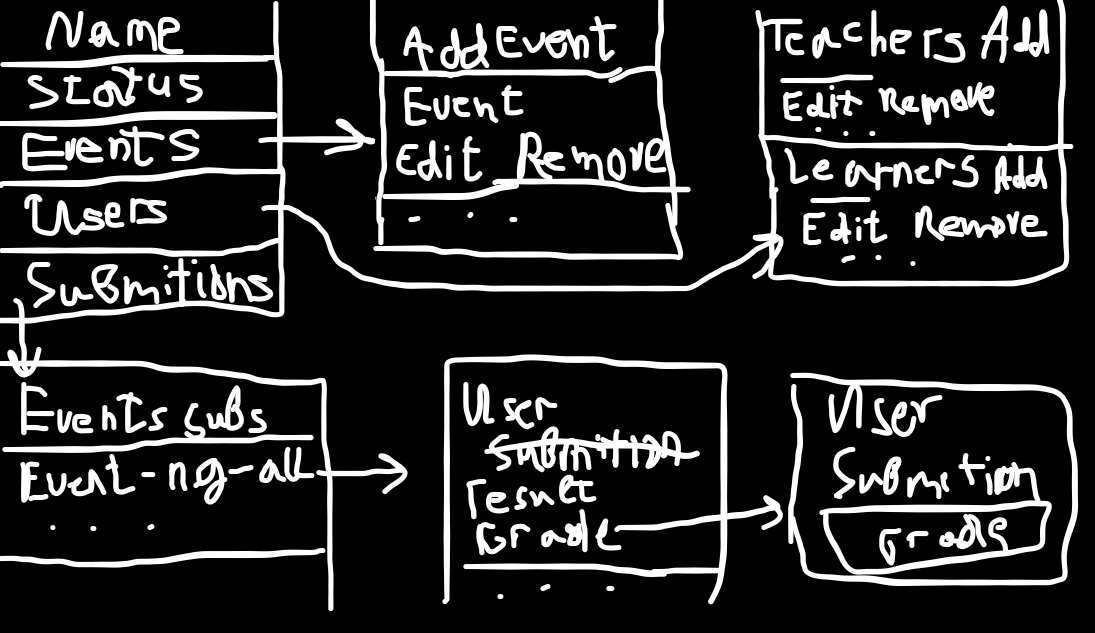 Name
Status
Events
Users
Submitions
Add Event
Event
Edit Remove
. . .
Teachers Add
Edit Remove
. . .
Learners Add
Edit Remove
. . .
Events subs
Event-ng-all
. . .
User
Submition
result
Grade
. . .
User
Submition
Grade